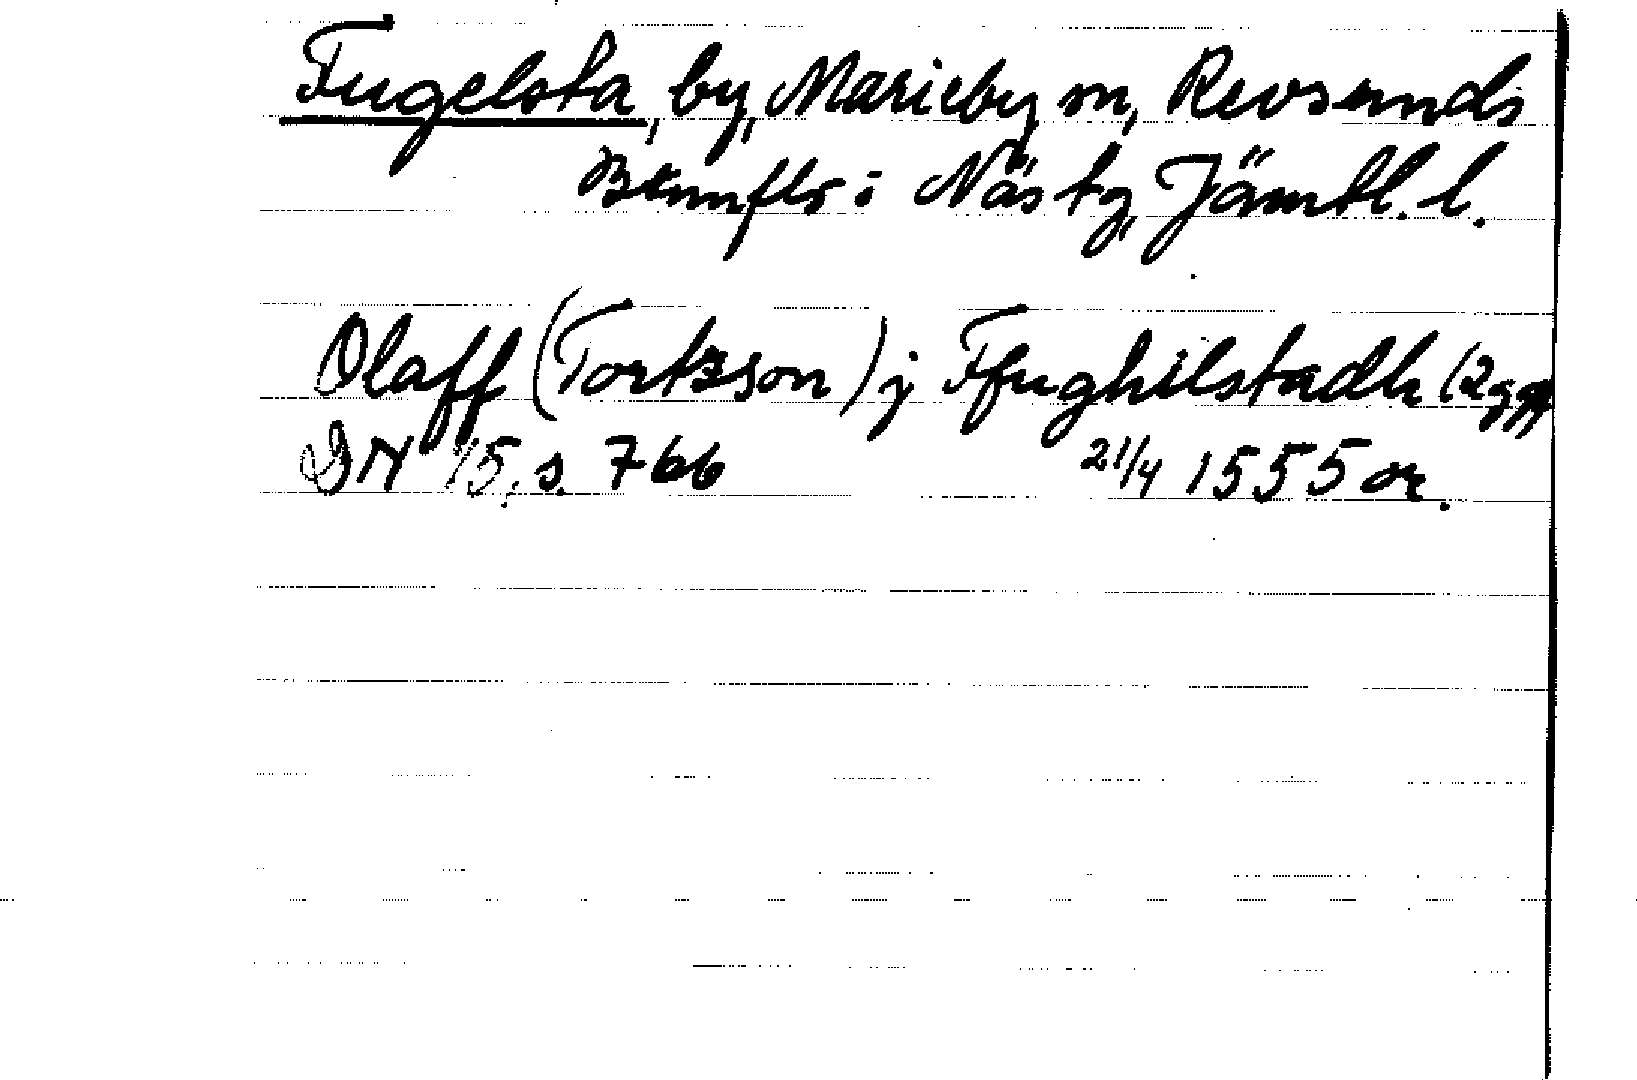 Fugelsta, by, Marieby sn, Revsunds
Brunflo i Näs tg, Jämtl. l.
Olaff (Tortzson) j Ffughilstadh (2ggr)
DN 15, s. 766 21/4 1555 or.